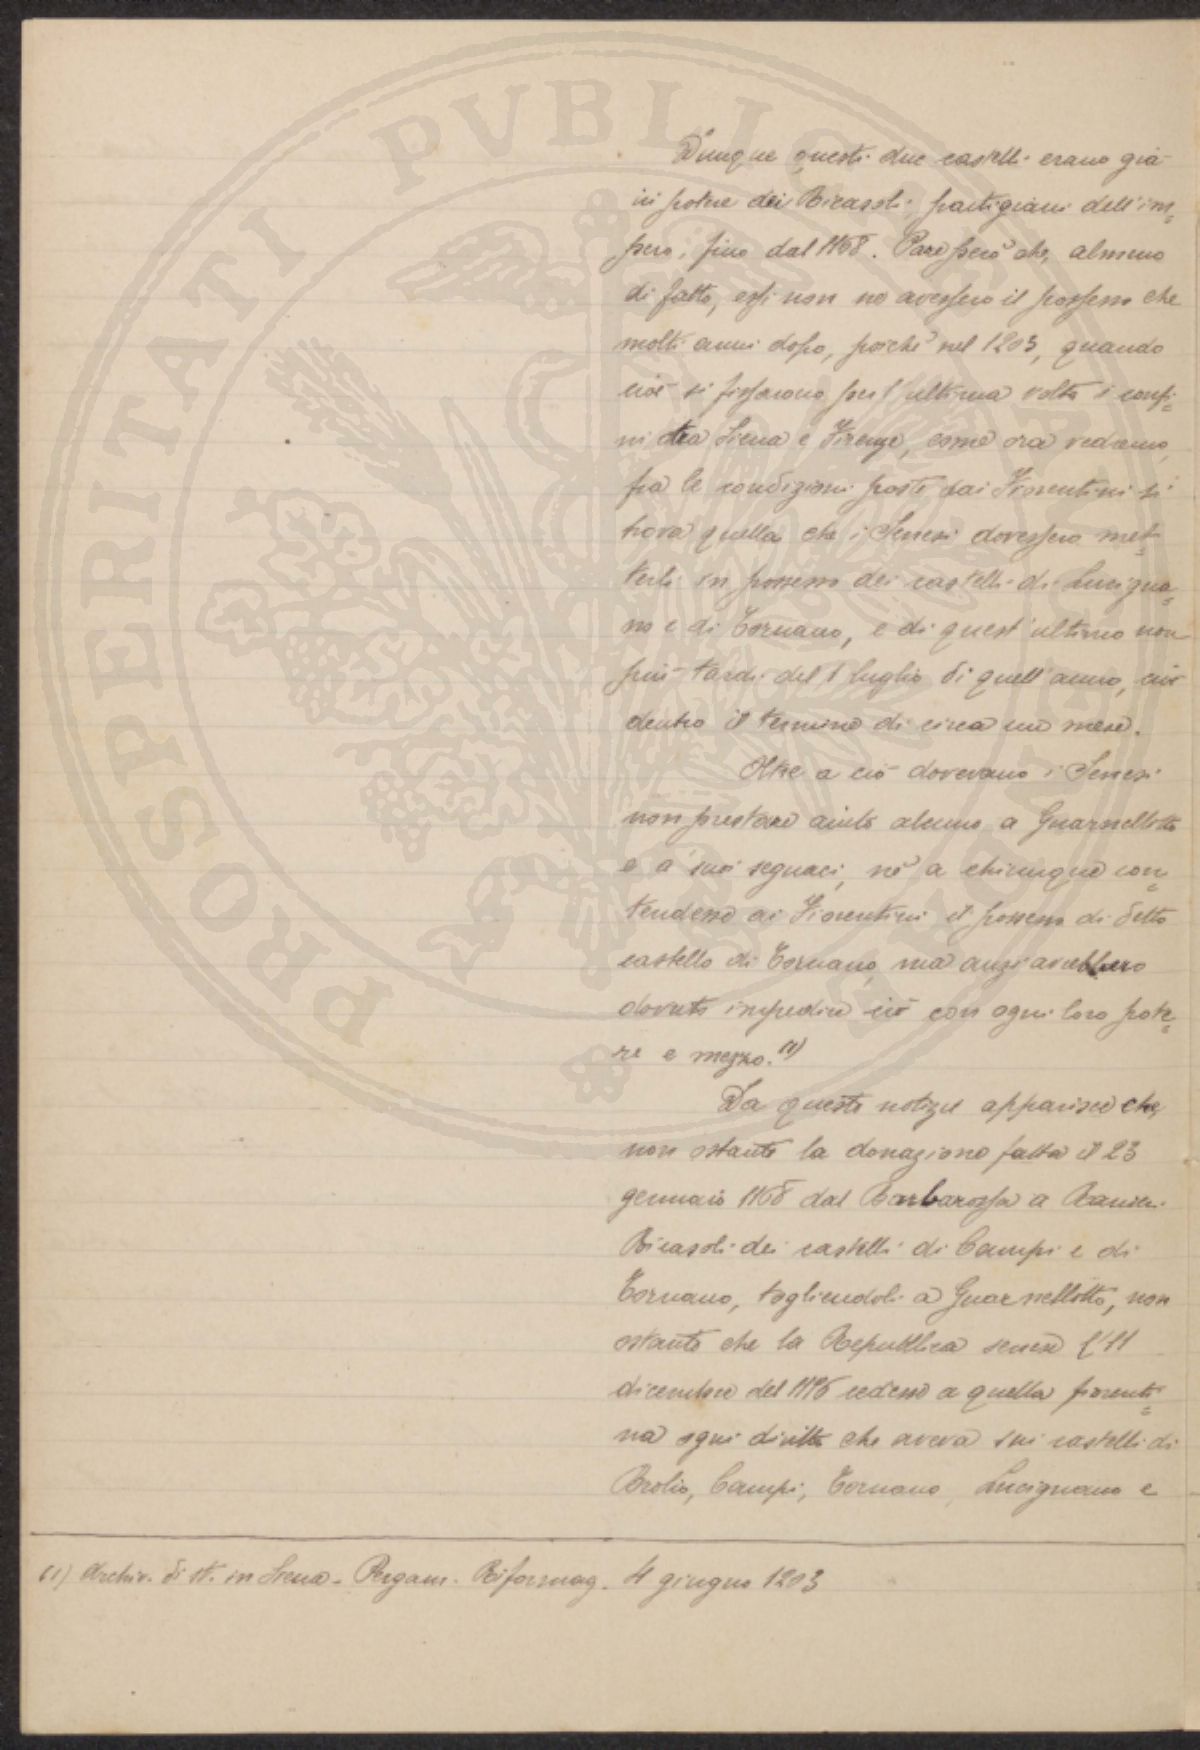 Dunque questi due castelli erano già
in potere dei Ricasoli, partigiani dell'im=
pero, fino dal 1168. Pare però che, almeno
di fatto, essi non ne avessero il possesso che
molti anni dopo, poichè nel 1203, quando
cioè si fissarono per l'ultima volta i confi=
ni tra Siena e Firenze, come ora vedremo,
fra le condizioni poste dai Fiorentini si
trova quella che i Senesi dovessero met=
terli in possesso dei castelli di Lucigna=
no e di Tornano, e di quest'ultimo non
più tardi del 1 luglio di quell'anno, cioè
dentro il termine di circa un mese.
Oltre a ciò dovevano i Senesi
non prestare aiuto alcuno a Guarnellotto
e a' suoi seguaci, nè a chiunque con=
tendesse ai Fiorentini il possesso di detto
castello di Tornano, ma anzi avrebbero
dovuto impedire ciò con ogni loro pote=
re e mezzo. (1)
Da queste notizie apparisce che,
non ostante la donazione fatta il 23
gennaio 1168 dal Barbarossa a Ranieri
Ricasoli dei castelli di Campi e di
Tornano, togliendoli a Guarnellotto, non
ostante che la Repubblica senese l'11
dicembre del 1176 cedesse a quella fiorenti=
na ogni diritto che aveva sui castelli di
Brolio, Campi, Tornano, Lucignano e
(1) Archiv. di St. in Siena - Pergam. Riformag. 4 giugno 1203
PROSPERITATI PVBLICAE